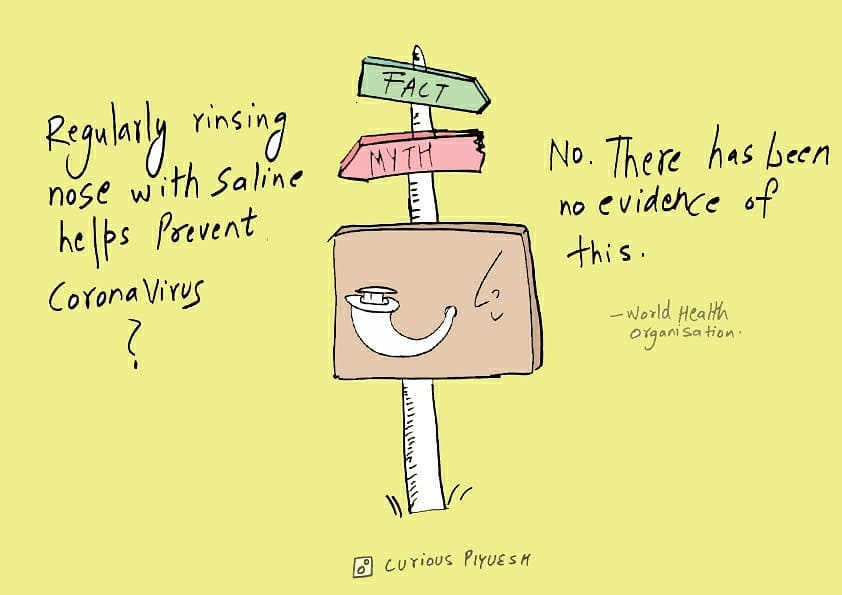 FACT
MYTH
Regularly rinsing
nose with saline
helps Prevent
CoronaVirus
?
No. There has been
no evidence of
this.
– World Health
organisation.
curious PIYUESH